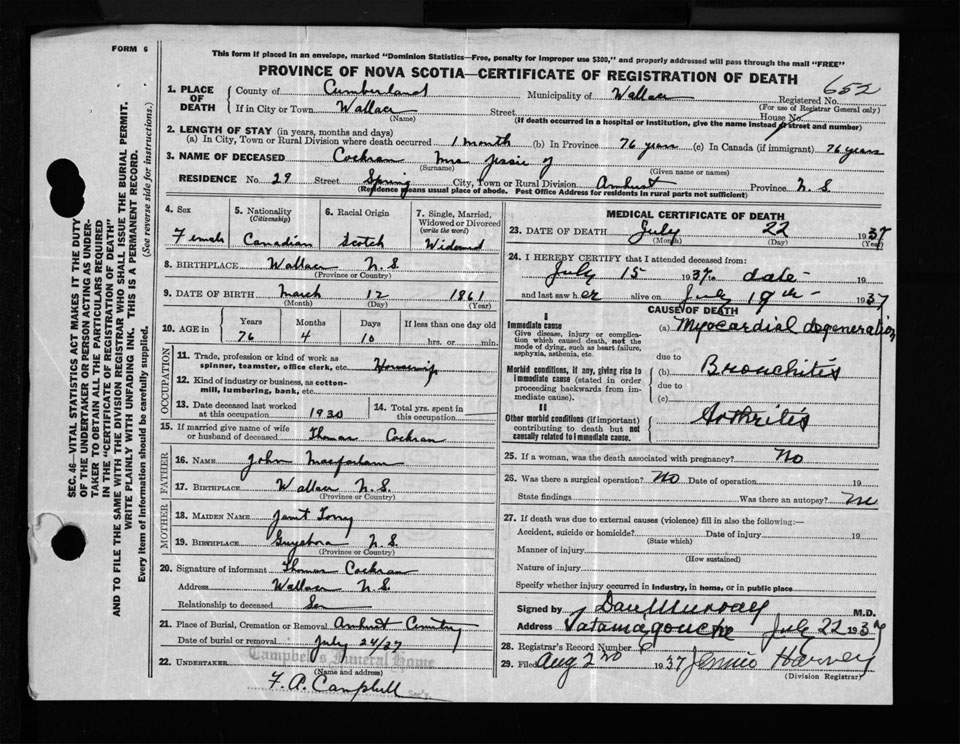 FORM 6
This form if placed in an envelope, marked "Dominion Statistics—Free, penalty for improper use $300," and properly addressed will pass through the mail "FREE"
PROVINCE OF NOVA SCOTIA—CERTIFICATE OF REGISTRATION OF DEATH
652
1. PLACE OF DEATH County of Cumberland Municipality of Wallace Registered No.
(For use of Registrar General only)
If in City or Town Wallace Street House No.
(Name) (If death occurred in a hospital or institution, give the name instead of street and number)
2. LENGTH OF STAY (in years, months and days)
(a) In City, Town or Rural Division where death occurred 1 month (b) In Province 76 years (c) In Canada (if immigrant) 76 years
3. NAME OF DECEASED Cochran Mrs Jessie J
(Surname) (Given name or names)
RESIDENCE No. 29 Street Spring City, Town or Rural Division Amherst Province N.S.
(Residence means usual place of abode. Post Office Address for residents in rural parts not sufficient)
4. Sex 5. Nationality (Citizenship) 6. Racial Origin 7. Single, Married, Widowed or Divorced (write the word)
Female Canadian Scotch Widowed
8. BIRTHPLACE Wallace N.S.
(Province or Country)
9. DATE OF BIRTH March 12 1861
(Month) (Day) (Year)
10. AGE in Years Months Days If less than one day old
76 4 10 hrs. or min.
OCCUPATION
11. Trade, profession or kind of work as spinner, teamster, office clerk, etc. Housewife
12. Kind of industry or business, as cotton-mill, lumbering, bank, etc.
13. Date deceased last worked at this occupation 1930 14. Total yrs. spent in this occupation
15. If married give name of wife or husband of deceased Thomas Cochran
FATHER
16. NAME John Macfarlane
17. BIRTHPLACE Wallace N.S.
(Province or Country)
MOTHER
18. MAIDEN NAME Janet Torry
19. BIRTHPLACE Guysboro N.S.
(Province or Country)
20. Signature of informant Thomas Cochran
Address Wallace N.S.
Relationship to deceased Son
21. Place of Burial, Cremation or Removal Amherst Cemetery
Date of burial or removal July 24/37
Campbell's Funeral Home
22. UNDERTAKER
(Name and address)
F. A. Campbell
MEDICAL CERTIFICATE OF DEATH
23. DATE OF DEATH July 22 1937
(Month) (Day) (Year)
24. I HEREBY CERTIFY that I attended deceased from:
July 15 1937 to date
and last saw her alive on July 19th 1937
CAUSE OF DEATH
I
Immediate cause (a) Myocardial degeneration
Give disease, injury or complication which caused death, not the mode of dying, such as heart failure, asphyxia, asthenia, etc.
due to
Morbid conditions, if any, giving rise to immediate cause (stated in order proceeding backwards from immediate cause). (b) Bronchitis
due to
(c)
II
Other morbid conditions (if important) contributing to death but not causally related to immediate cause. Arthritis
25. If a woman, was the death associated with pregnancy? No
26. Was there a surgical operation? No Date of operation 19
State findings Was there an autopsy? No
27. If death was due to external causes (violence) fill in also the following:—
Accident, suicide or homicide? Date of injury 19
(State which)
Manner of injury
(How sustained)
Nature of injury
Specify whether injury occurred in industry, in home, or in public place
Signed by Dan Murray M.D.
Address Tatamagouche July 22 1937
28. Registrar's Record Number 6
29. Filed Aug 2nd 1937 Jennie Harvey
(Division Registrar)
SEC. 46—VITAL STATISTICS ACT MAKES IT THE DUTY
OF THE UNDERTAKER OR PERSON ACTING AS UNDER-
TAKER TO OBTAIN ALL THE PARTICULARS REQUIRED
IN THE "CERTIFICATE OF REGISTRATION OF DEATH"
AND TO FILE THE SAME WITH THE DIVISION REGISTRAR WHO SHALL ISSUE THE BURIAL PERMIT.
WRITE PLAINLY WITH UNFADING INK. THIS IS A PERMANENT RECORD.
Every item of information should be carefully supplied. (See reverse side for instructions.)